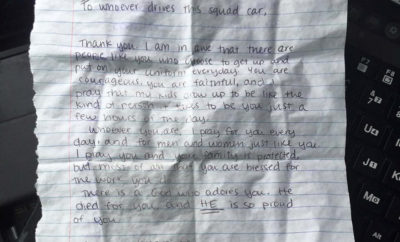 To whoever drives this squad car,
Thank you. I am in awe that there are
people like you who choose to get up and
put on your uniform everyday. You are
courageous, you are faithful, and I
pray that my kids grow up to be like the
kind of person it takes to be you just a
few hours of the day.
Whoever you are, I pray for you every
day and for men and women just like you.
I pray you and your family is protected,
but most of all that you are blessed for
the work you do.
There is a God who adores you. He
died for you and HE is so proud
of you.
F7
F8
&
7
U
J
K
M
Alt